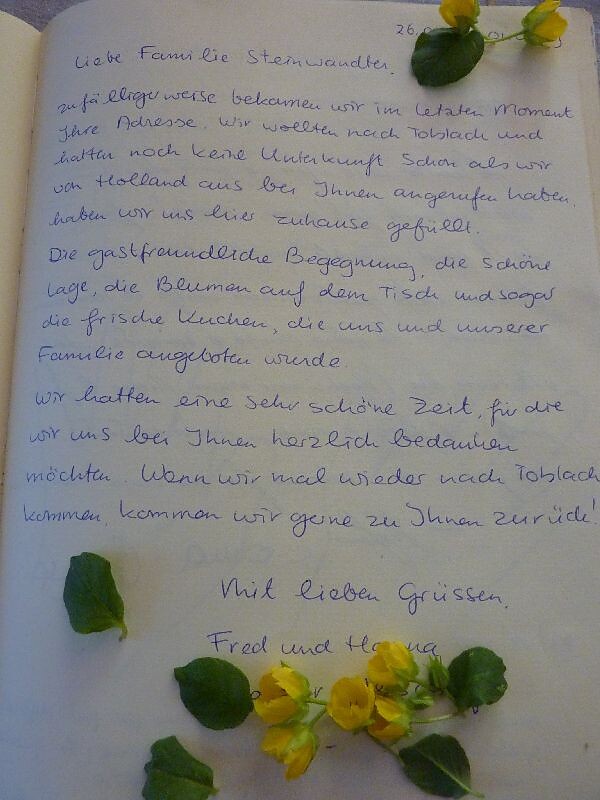 26.
Liebe Familie Steinwandter.
zufälligerweise bekamen wir im letzten Moment
Ihre Adresse. Wir wollten nach Toblach und
hatten noch keine Unterkunft Schon als wir
von Holland aus bei Ihnen angerufen haben.
haben wir uns hier zuhause gefüllt.
Die gastfreundliche Begegnung, die schöne
Lage, die Blumen auf dem Tisch und sogar
die frische Kuchen, die uns und unserer
Familie angeboten wurde.
Wir hatten eine sehr schöne Zeit, für die
wir uns bei Ihnen herzlich bedanken
möchten. Wenn wir mal wieder nach Toblach
kommen, kommen wir gerne zu Ihnen zurück!
Mit lieben Grüssen,
Fred und